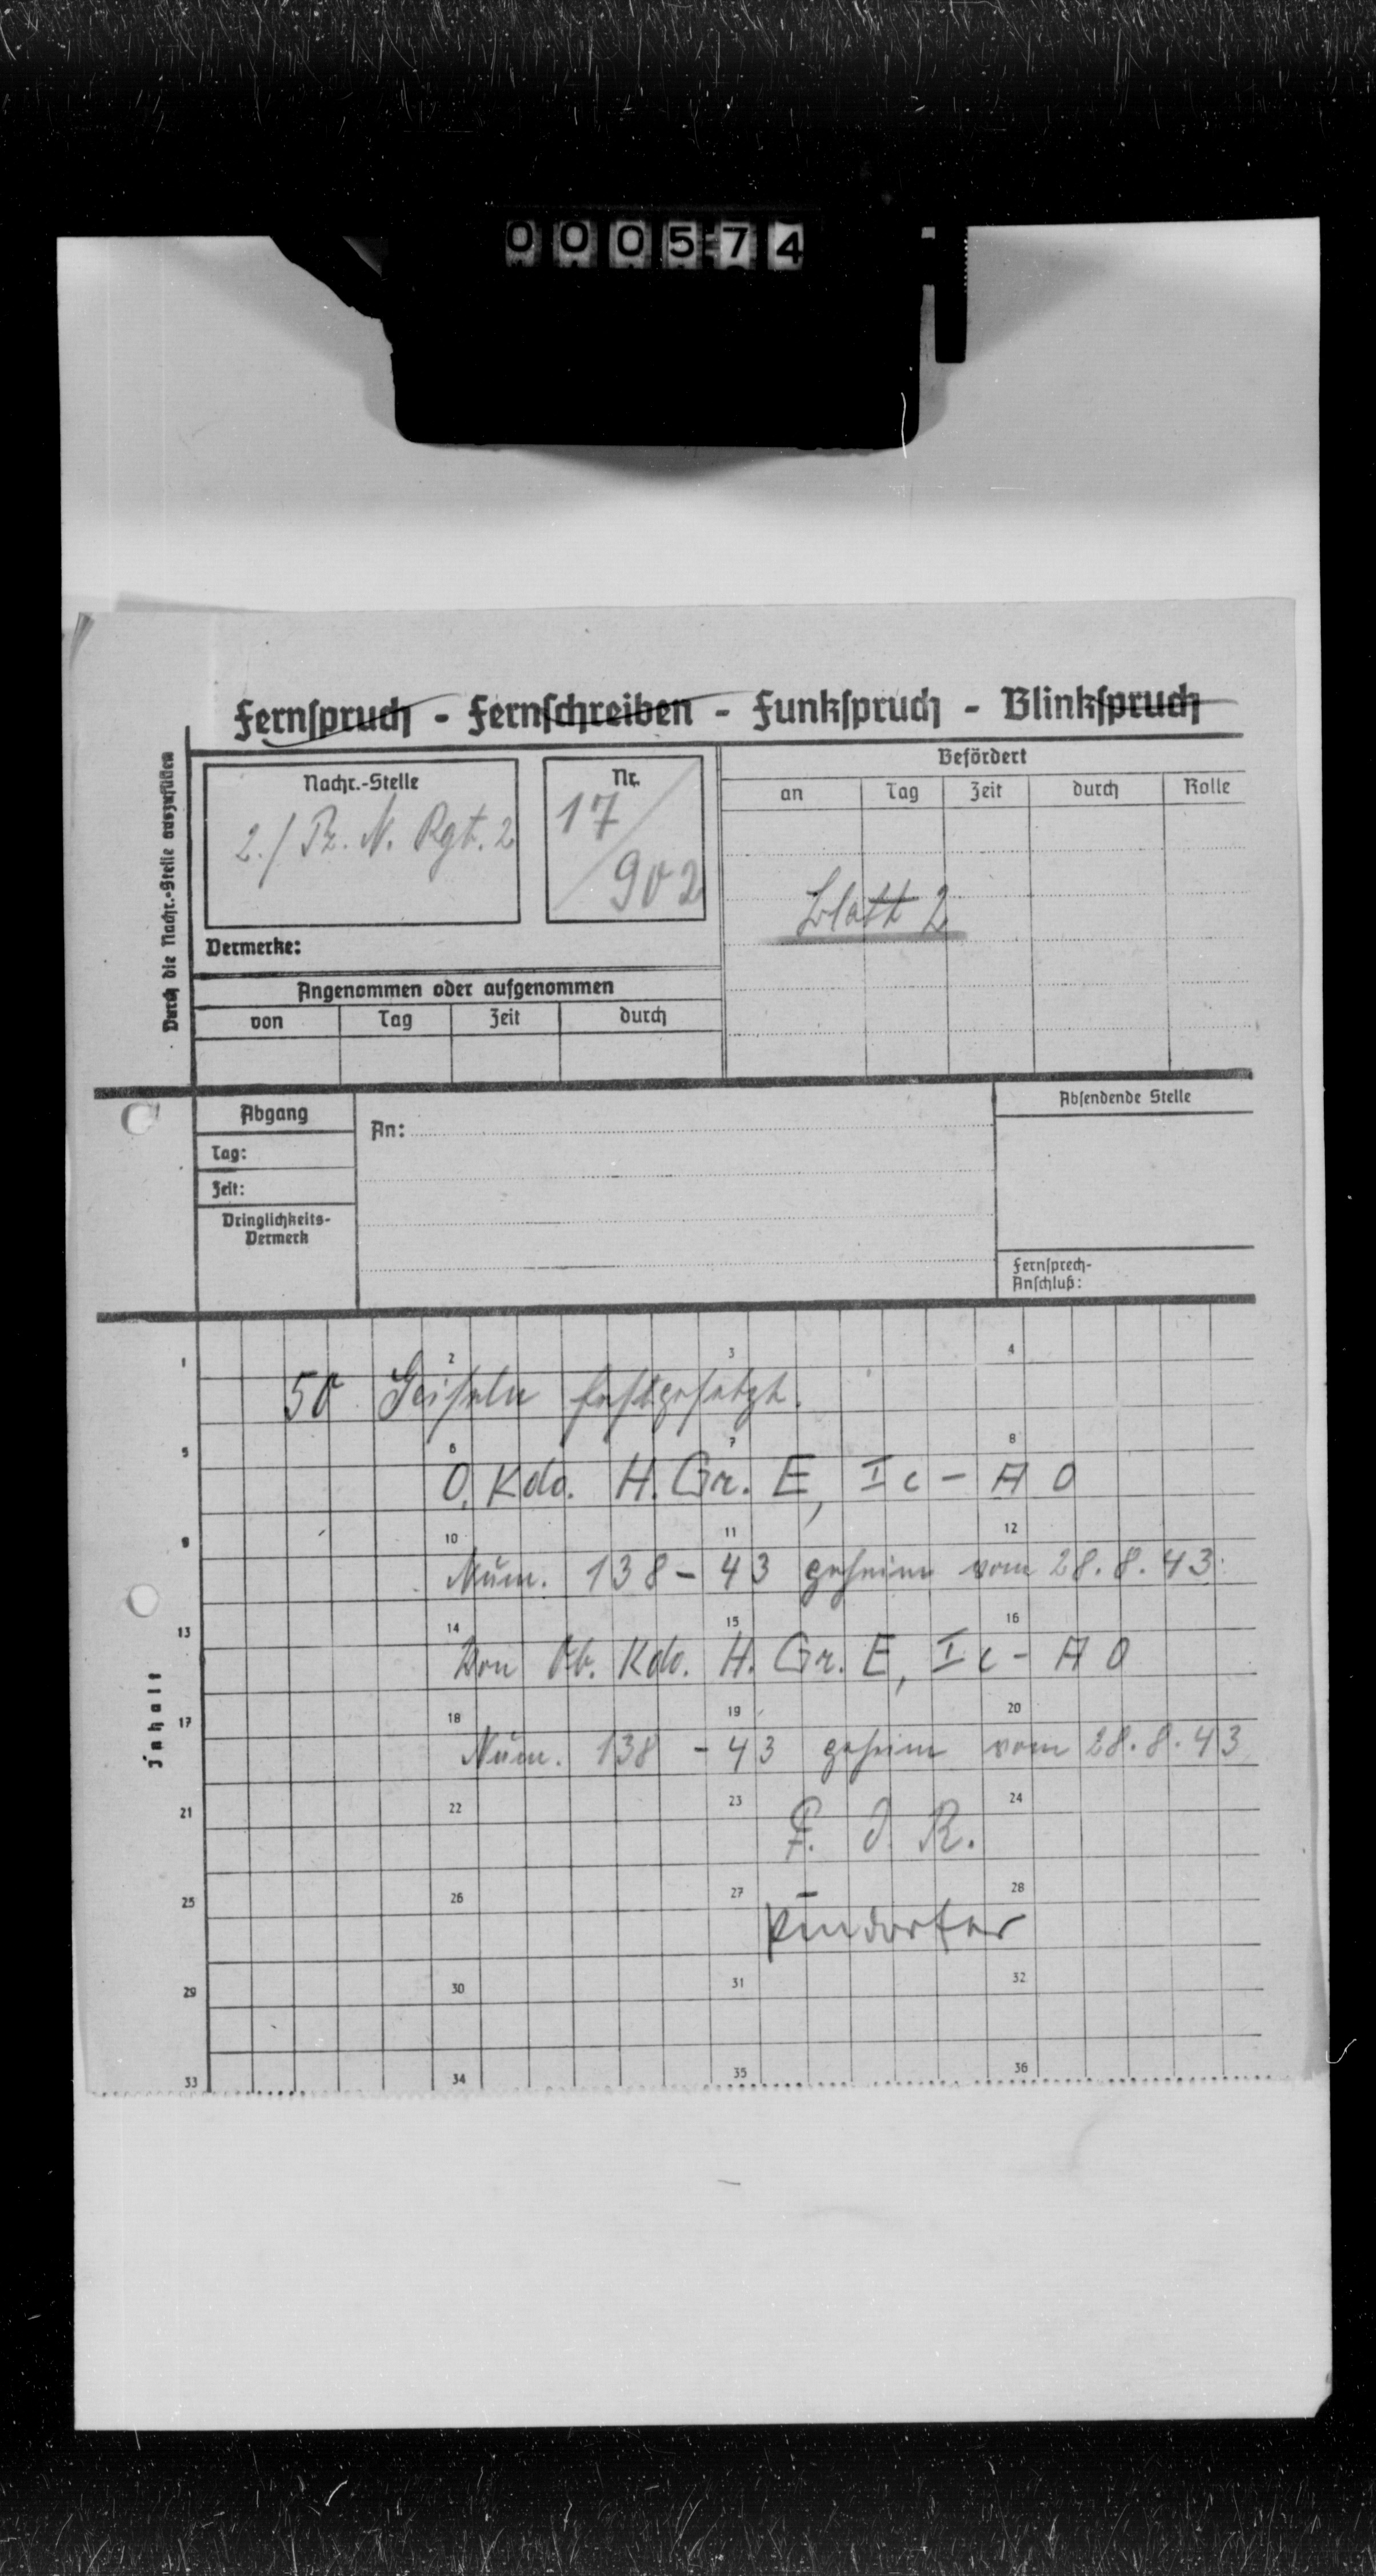 000574
Fernspruch - Fernschreiben - Funkspruch - Blinkspruch
Durch die Nachr.-Stelle auszufüllen
Nachr.-Stelle
2./ Pz. N. Rgt. 2
Nr.
17/
902
Befördert
an Tag Zeit durch Rolle
Blatt 2
Vermerke:
Angenommen oder aufgenommen
von Tag Zeit durch
Abgang
Tag:
Zeit:
Dringlichkeits-
Vermerk
An:
Absendende Stelle
Fernsprech-
Anschluß:
Inhalt
1 2 3 4
50 Geiseln festgesetzt.
5 6 7 8
O. Kdo. H. Gr. E, Ic - A O
9 10 11 12
Num. 138 - 43 geheim vom 28.8.43.
13 14 15 16
Von Ob. Kdo. H. Gr. E, Ic - A O
17 18 19 20
Num. 138 - 43 geheim vom 28.8.43
21 22 23 24
F. d. R.
25 26 27 28
29 30 31 32
33 34 35 36